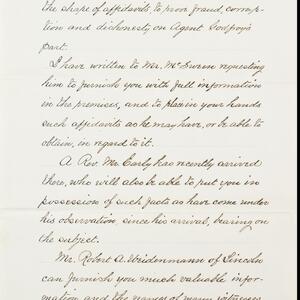 the shape of affidavits, to prove fraud, corrup-
tion and dishonesty, on Agent Godfroy's
part.
I have written to Mr. McSwein requesting
him to furnish you with full information
in the premises, and to place in your hands
such affidavits as he may have, or be able to
obtain, in regard to it.
A Rev. Mr. Early has recently arrived
there, who will also be able to put you in
possession of such facts as have come under
his observation, since his arrival, bearing on
the subject.
Mr. Robert A. Widenmann of Lincoln
can furnish you much valuable infor-
mation and the names of many witnesses